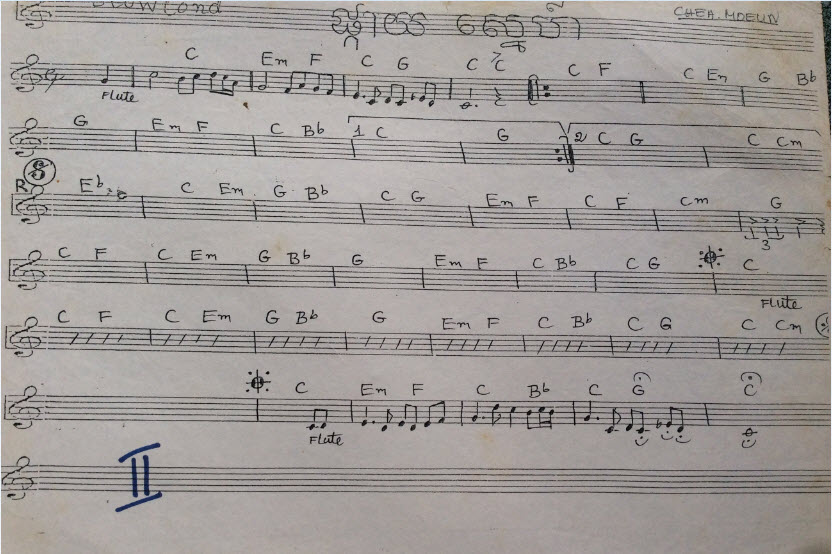 CHEA. MOEUN
C Em F C G C 7 C C F C Em G Bb
Flute
G Em F C Bb 1 C G 2 C G C Cm
S
R Eb C Em G Bb C G Em F C F Cm G
3
C F C Em G Bb G Em F C Bb C G C
FLUTE
C F C Em G Bb G Em F C Bb C G C Cm
C Em F C Bb C G C
Flute
II